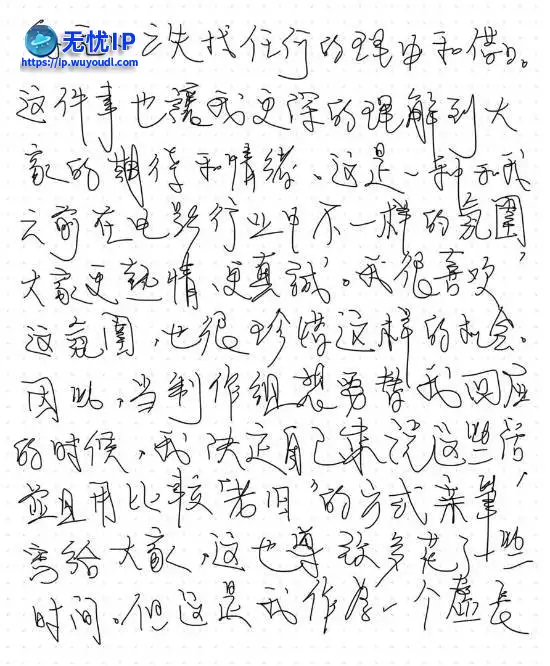 无忧IP
https://ip.wuyoudl.com
去找任何的理由和借口。
这件事也讓我更深的理解到大
家的期待和情绪、这是一种和我
之前在电影行业中不一样的氛圍,
大家更熱情、更真誠。我很喜欢
这氛圍,也很珍惜这样的机会。
因此,当制作组想要替我回应
的时候,我决定自己来说这些话,
並且用比较“老旧”的方式亲筆
写给大家,这也導致多花了一些
时间。但这是我作为一个虛長